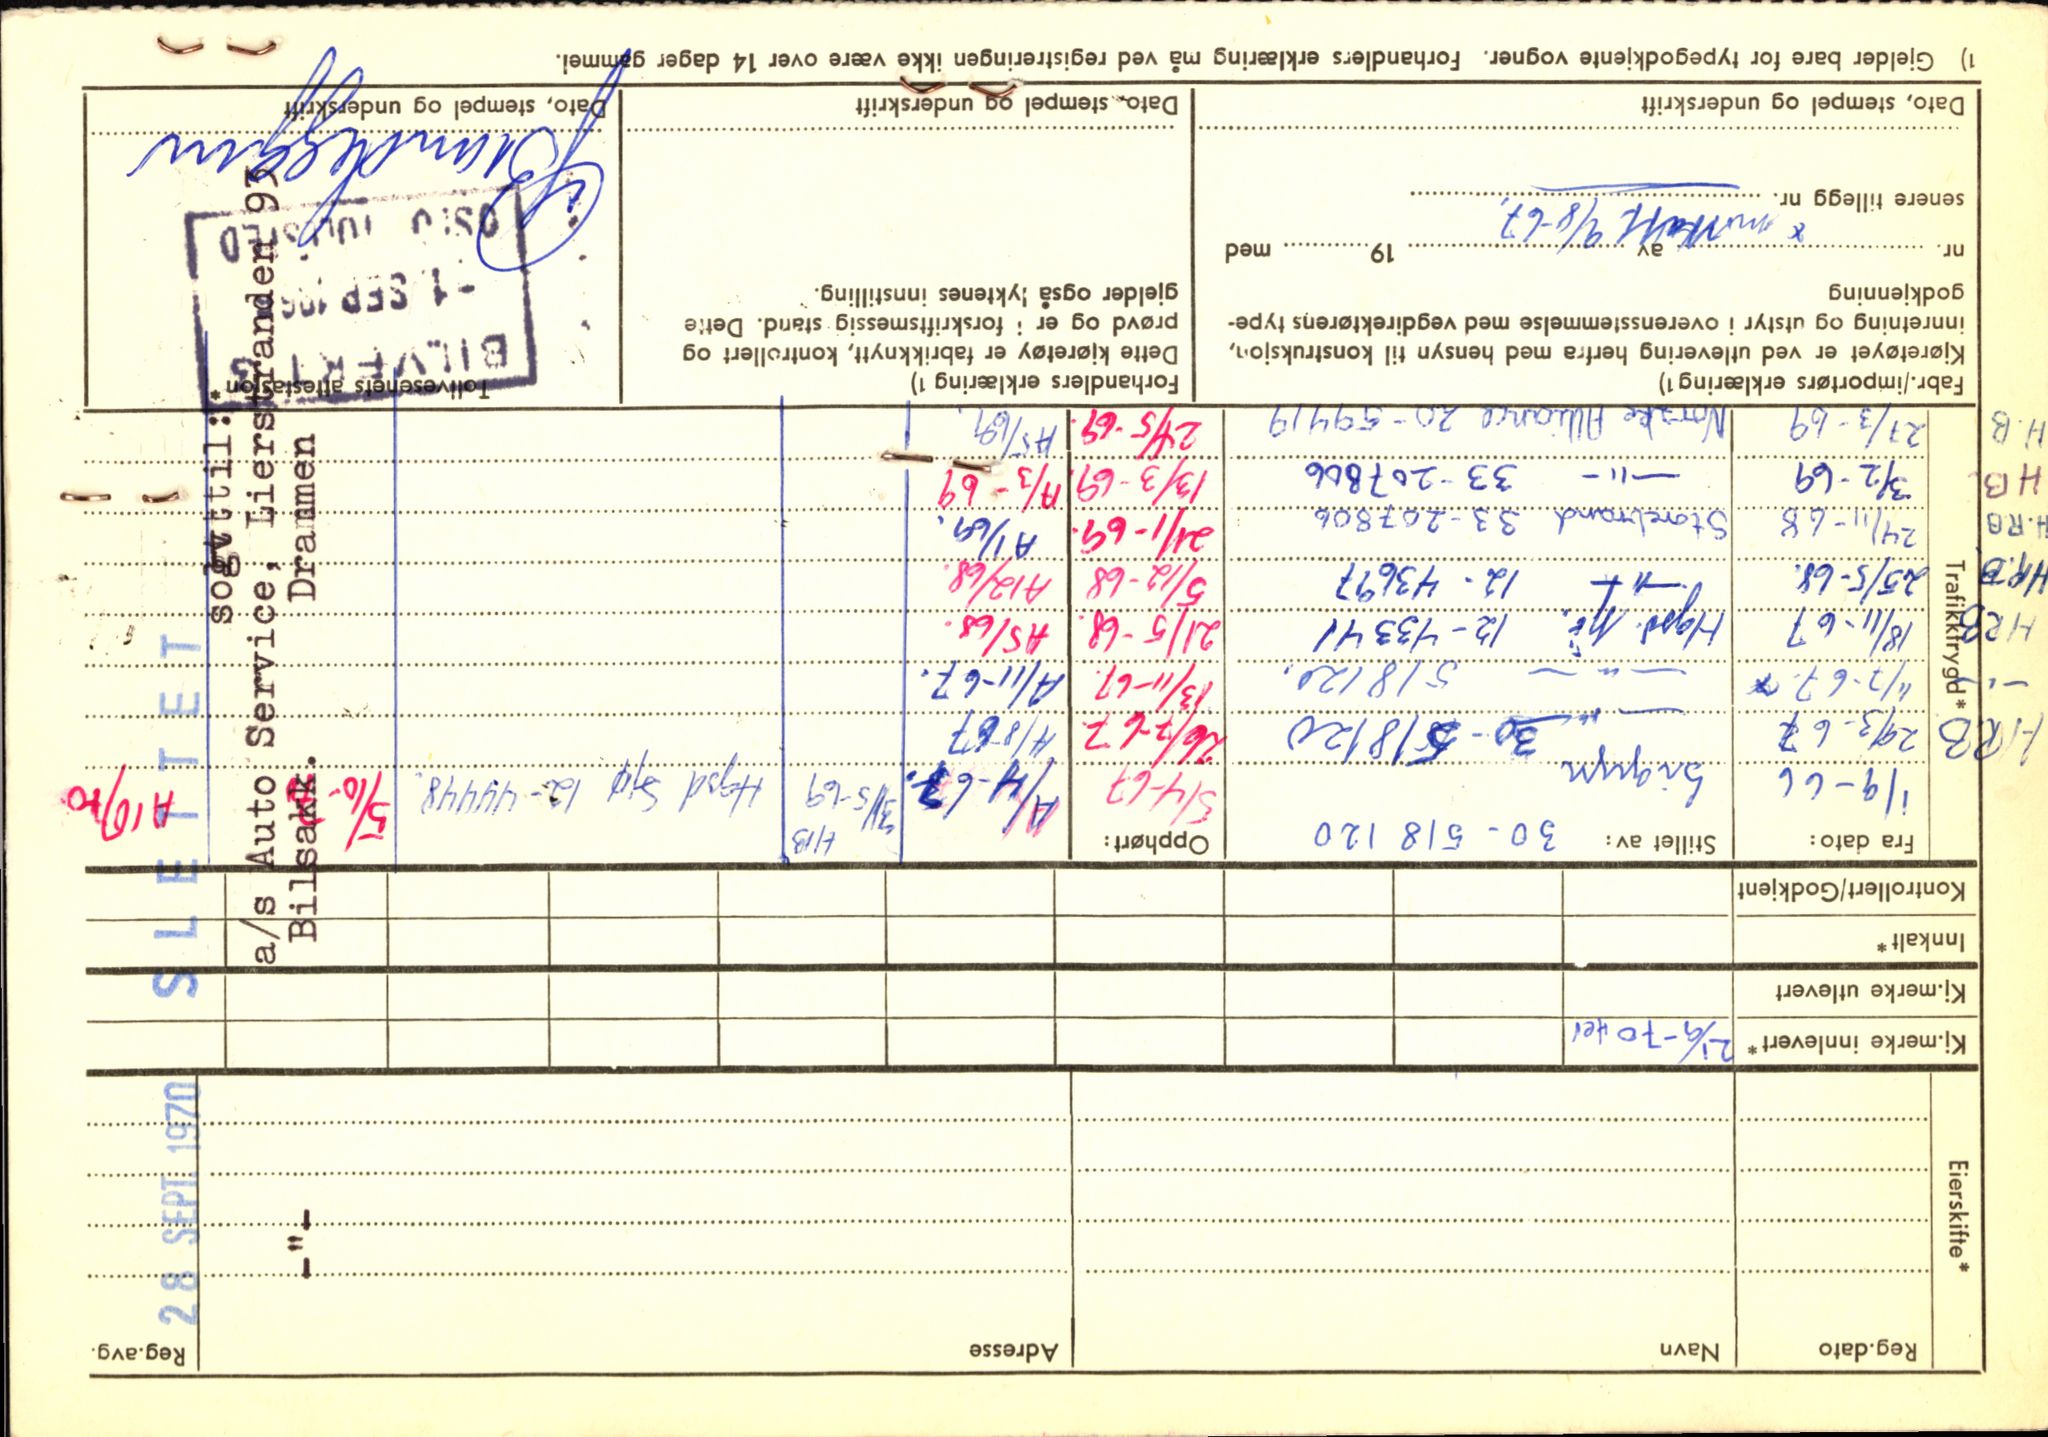 Eierskifte*
Reg.dato
Navn
Adresse
Reg.avg.
28 SEPT. 1970
-"-
Kj.merke innlevert*
21/9-70
Kj.merke utlevert
Innkalt*
Kontrollert/Godkjent
SLETTET
sogvttil:*
a/s Auto Service, Lierstranden 93
Bilsakk. Drammen
Trafikktrygd*
Fra dato:
Stillet av: 30-518120
Opphørt:
1/9-66
5/4-67
A/4-67.
HB
31/5-69
Hgsd Sjø 12-44448.
5/10-70
A10/70.
HRB
29/3-67
-"- 30-518120
26/7-67
A/8-67
-"-
11/7-67.*
-"- 518120.
13/11-67.
A/11-67.
HRB
18/11-67
Hgsd. 12-43341
21/5-68.
A5/68.
HR.B.
25/5-68.
-"- 12-43697
5/12-68
A12/68.
H.RB
24/11-68
Storebrand 33-207806
21/1-69.
A1/69.
HB.
3/2-69
-"- 33-207806
13/3-69.
A/3-69
H.B
27/3-69
Norske Alliance 20-59419
24/5-69.
A5/69.
Fabr./importørs erklæring 1)
Kjøretøyet er ved utlevering med hensyn til konstruksjon,
innretning og utstyr i overensstemmelse med vegdirektørens type-
godkjenning
nr. av 19 med
* mottatt 9/8-67.
senere tillegg nr.
Dato, stempel og underskrift
Forhandlers erklæring 1)
Dette kjøretøy er fabrikknytt, kontrollert og
prøvd og er i forskriftsmessig stand. Dette
gjelder også lyktenes innstilling.
Dato, stempel og underskrift
Tollvesenets attestasjon
-1 SEP 196
OSLO TOLLSTED
Dato, stempel og underskrift
1) Gjelder bare for typegodkjente vogner. Forhandlers erklæring må ved registreringen ikke være over 14 dager gammel.